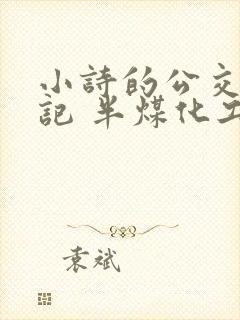 小詩的公交
記 半煤化工
袁斌